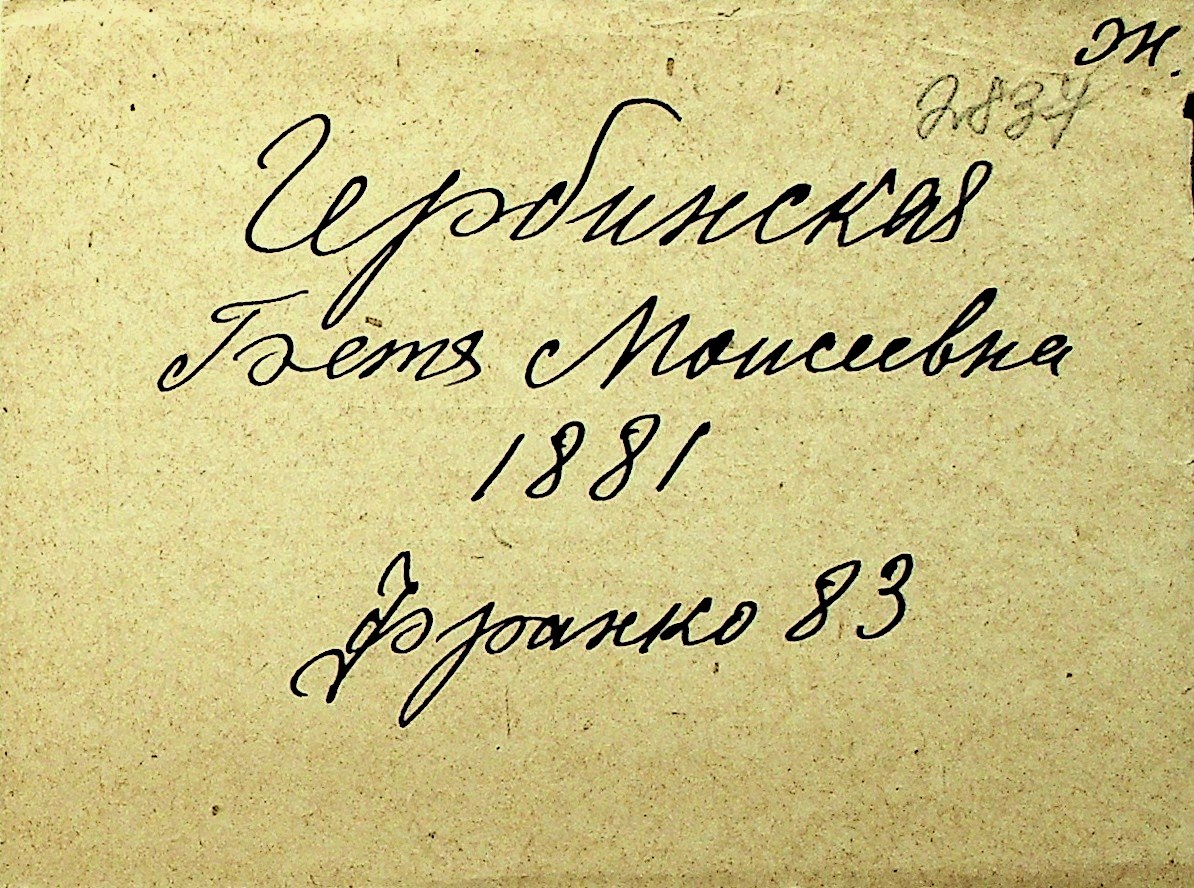 ж.
2837
Чербинская
Бетя Моисеевна
1881
Франко 83